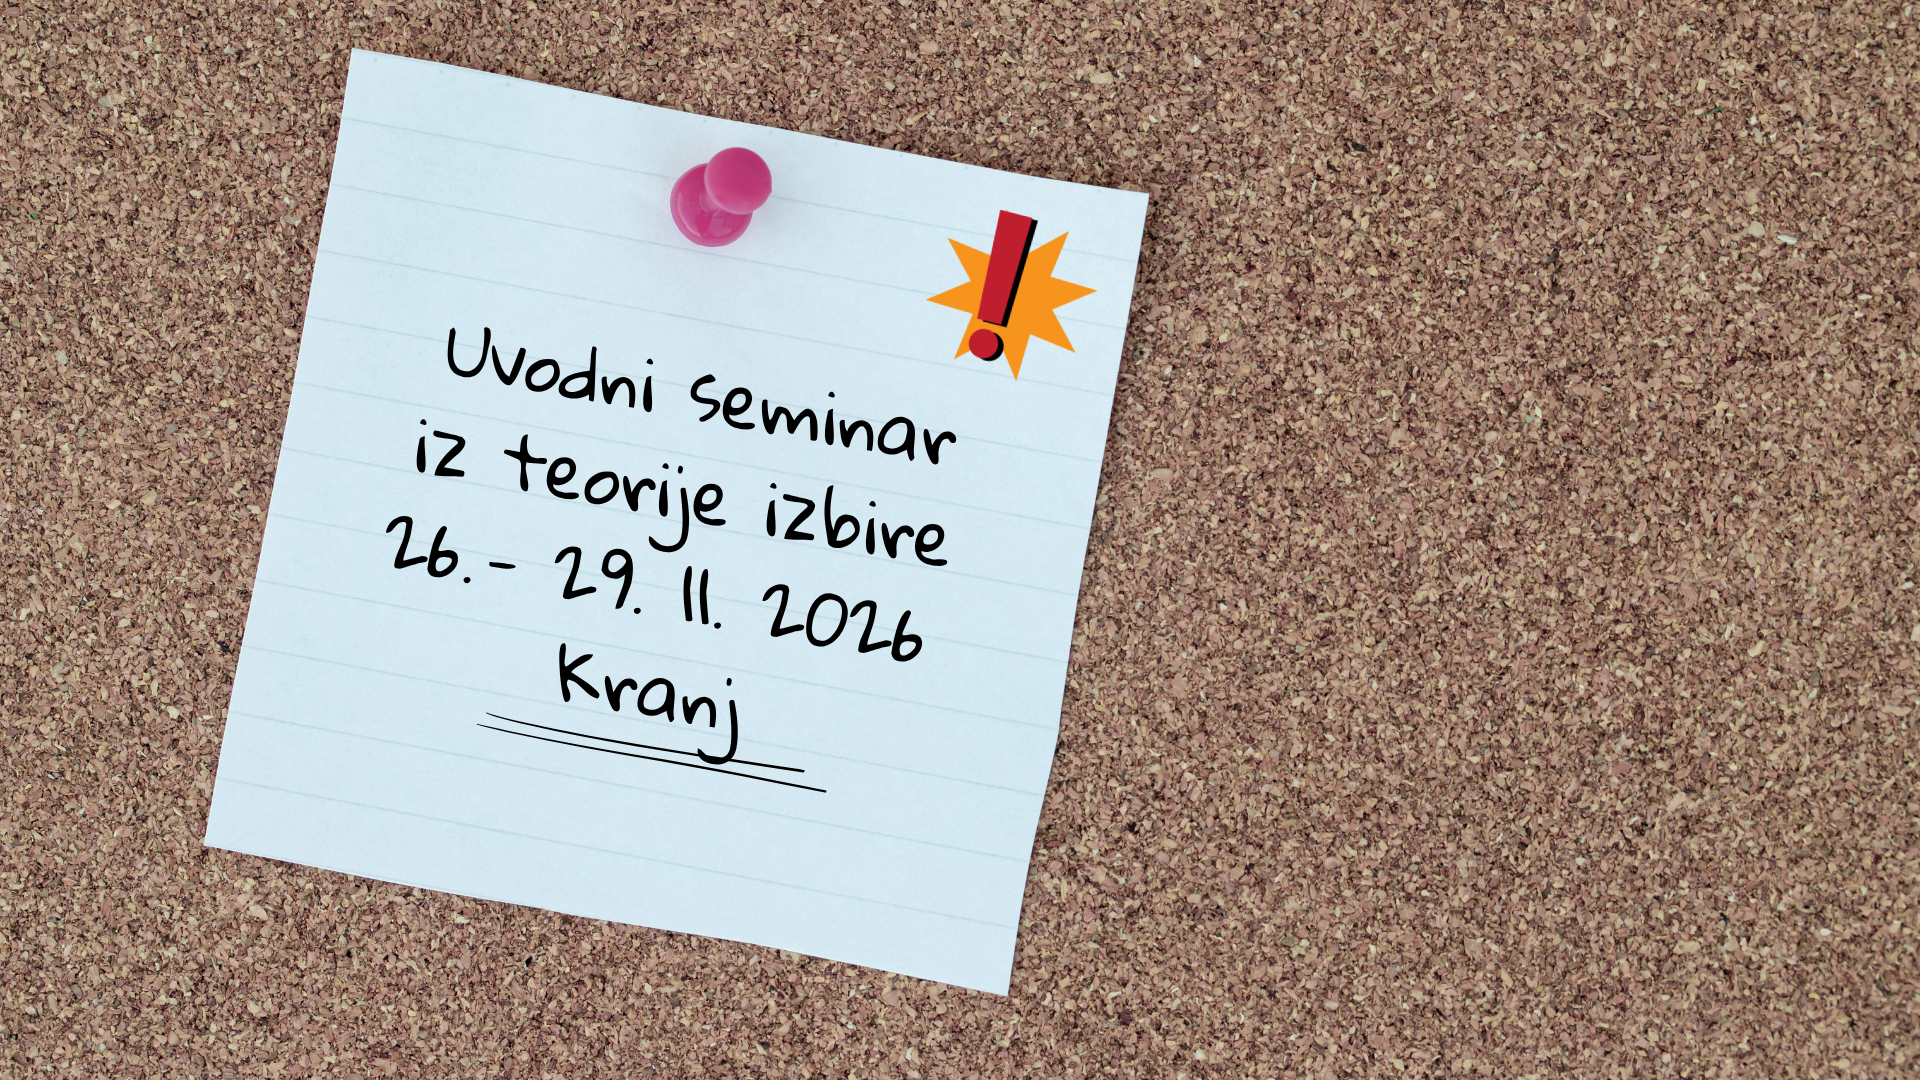 Uvodni seminar
iz teorije izbire
26.- 29. 11. 2026
Kranj